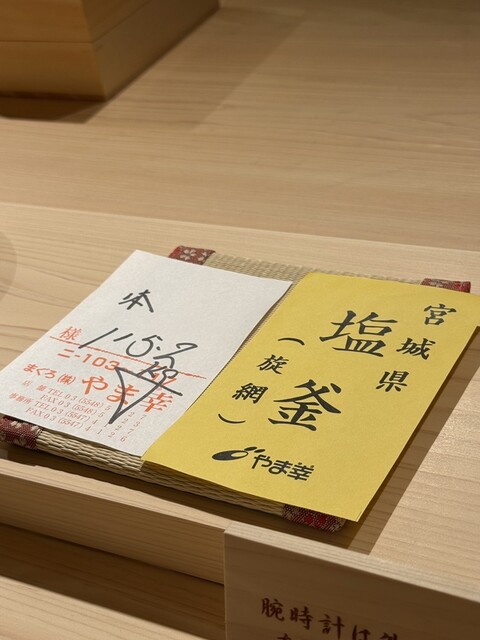 本
115.9
様
ニ-103
まぐろ(株)やま幸
TEL03(5548)
FAX03(5548)
事務所TEL03(5547)
FAX03(5547)
宮城県
塩釜
(旋網)
やま幸
腕時計は